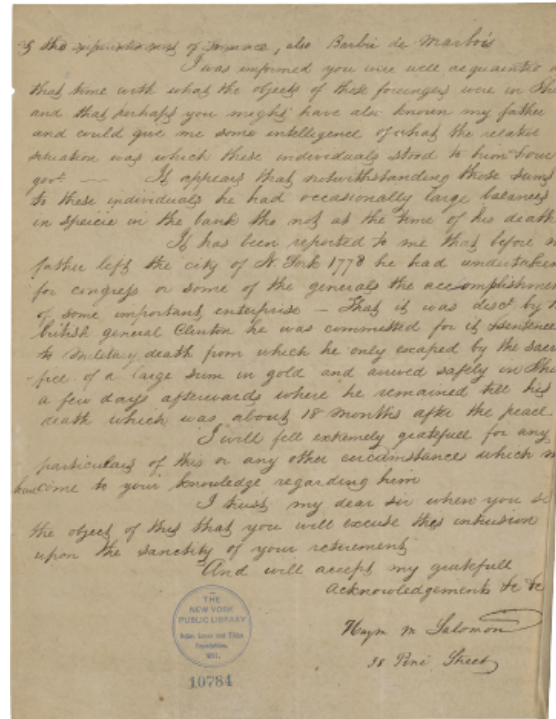 of the                     of finance, also Barbie de Marbois
I was informed you were well acquainted
that time with what the objects of these foreigners were in
and that perhaps you might have also known my father
and could give me some intelligence of what the relative
situation was which these individuals stood to him &
govt — It appears that notwithstanding those sums
to these individuals he had occasionally large balances
in specie in the bank tho not at the time of his death
It has been reported to me that before
father left the city of N. York 1778 he had undertaken
for congress or some of the generals the accomplishment
of some important enterprise — That it was disct by
british general Clinton he was committed for it & sentenced
to military death from which he only escaped by the sacri
-fice of a large sum in gold and arrived safely in
a few days afterwards where he remained till his
death which was about 18 months after the peace.
I will fell extremely gratefull for any
particulars of this or any other circumstances which
have come to your knowledge regarding him
I trust my dear sir when you
the object of this that you will excuse this intrusion
upon the sanctity of your retirement
And will accept my gratefull
acknowledgements &c &c
Haym M Salomon
38 Pine Street
THE
NEW YORK
PUBLIC LIBRARY
Astor, Lenox and Tilden
Foundation.
10784